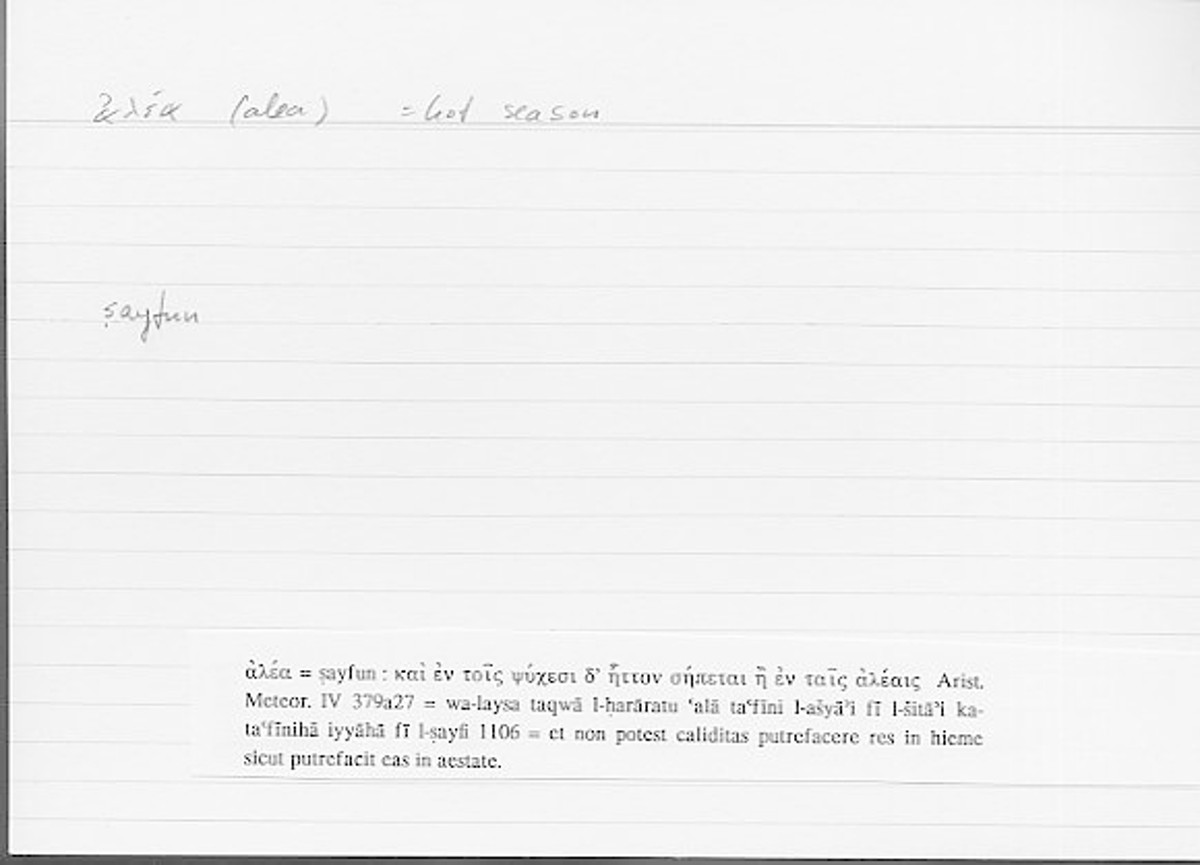 ἀλέα (alea) = hot season
ṣayfun
ἀλέα = ṣayfun : καὶ ἐν τοῖς ψύχεσι δ’ ἧττον σήπεται ἢ ἐν ταῖς ἀλέαις Arist.
Meteor. IV 379a27 = wa-laysa taqwā l-ḥarāratu ‘alā ta‘fīni l-ašyā’i fī l-šitā’i ka-
ta‘fīnihā iyyāhā fī l-ṣayfi 1106 = et non potest caliditas putrefacere res in hieme
sicut putrefacit eas in aestate.